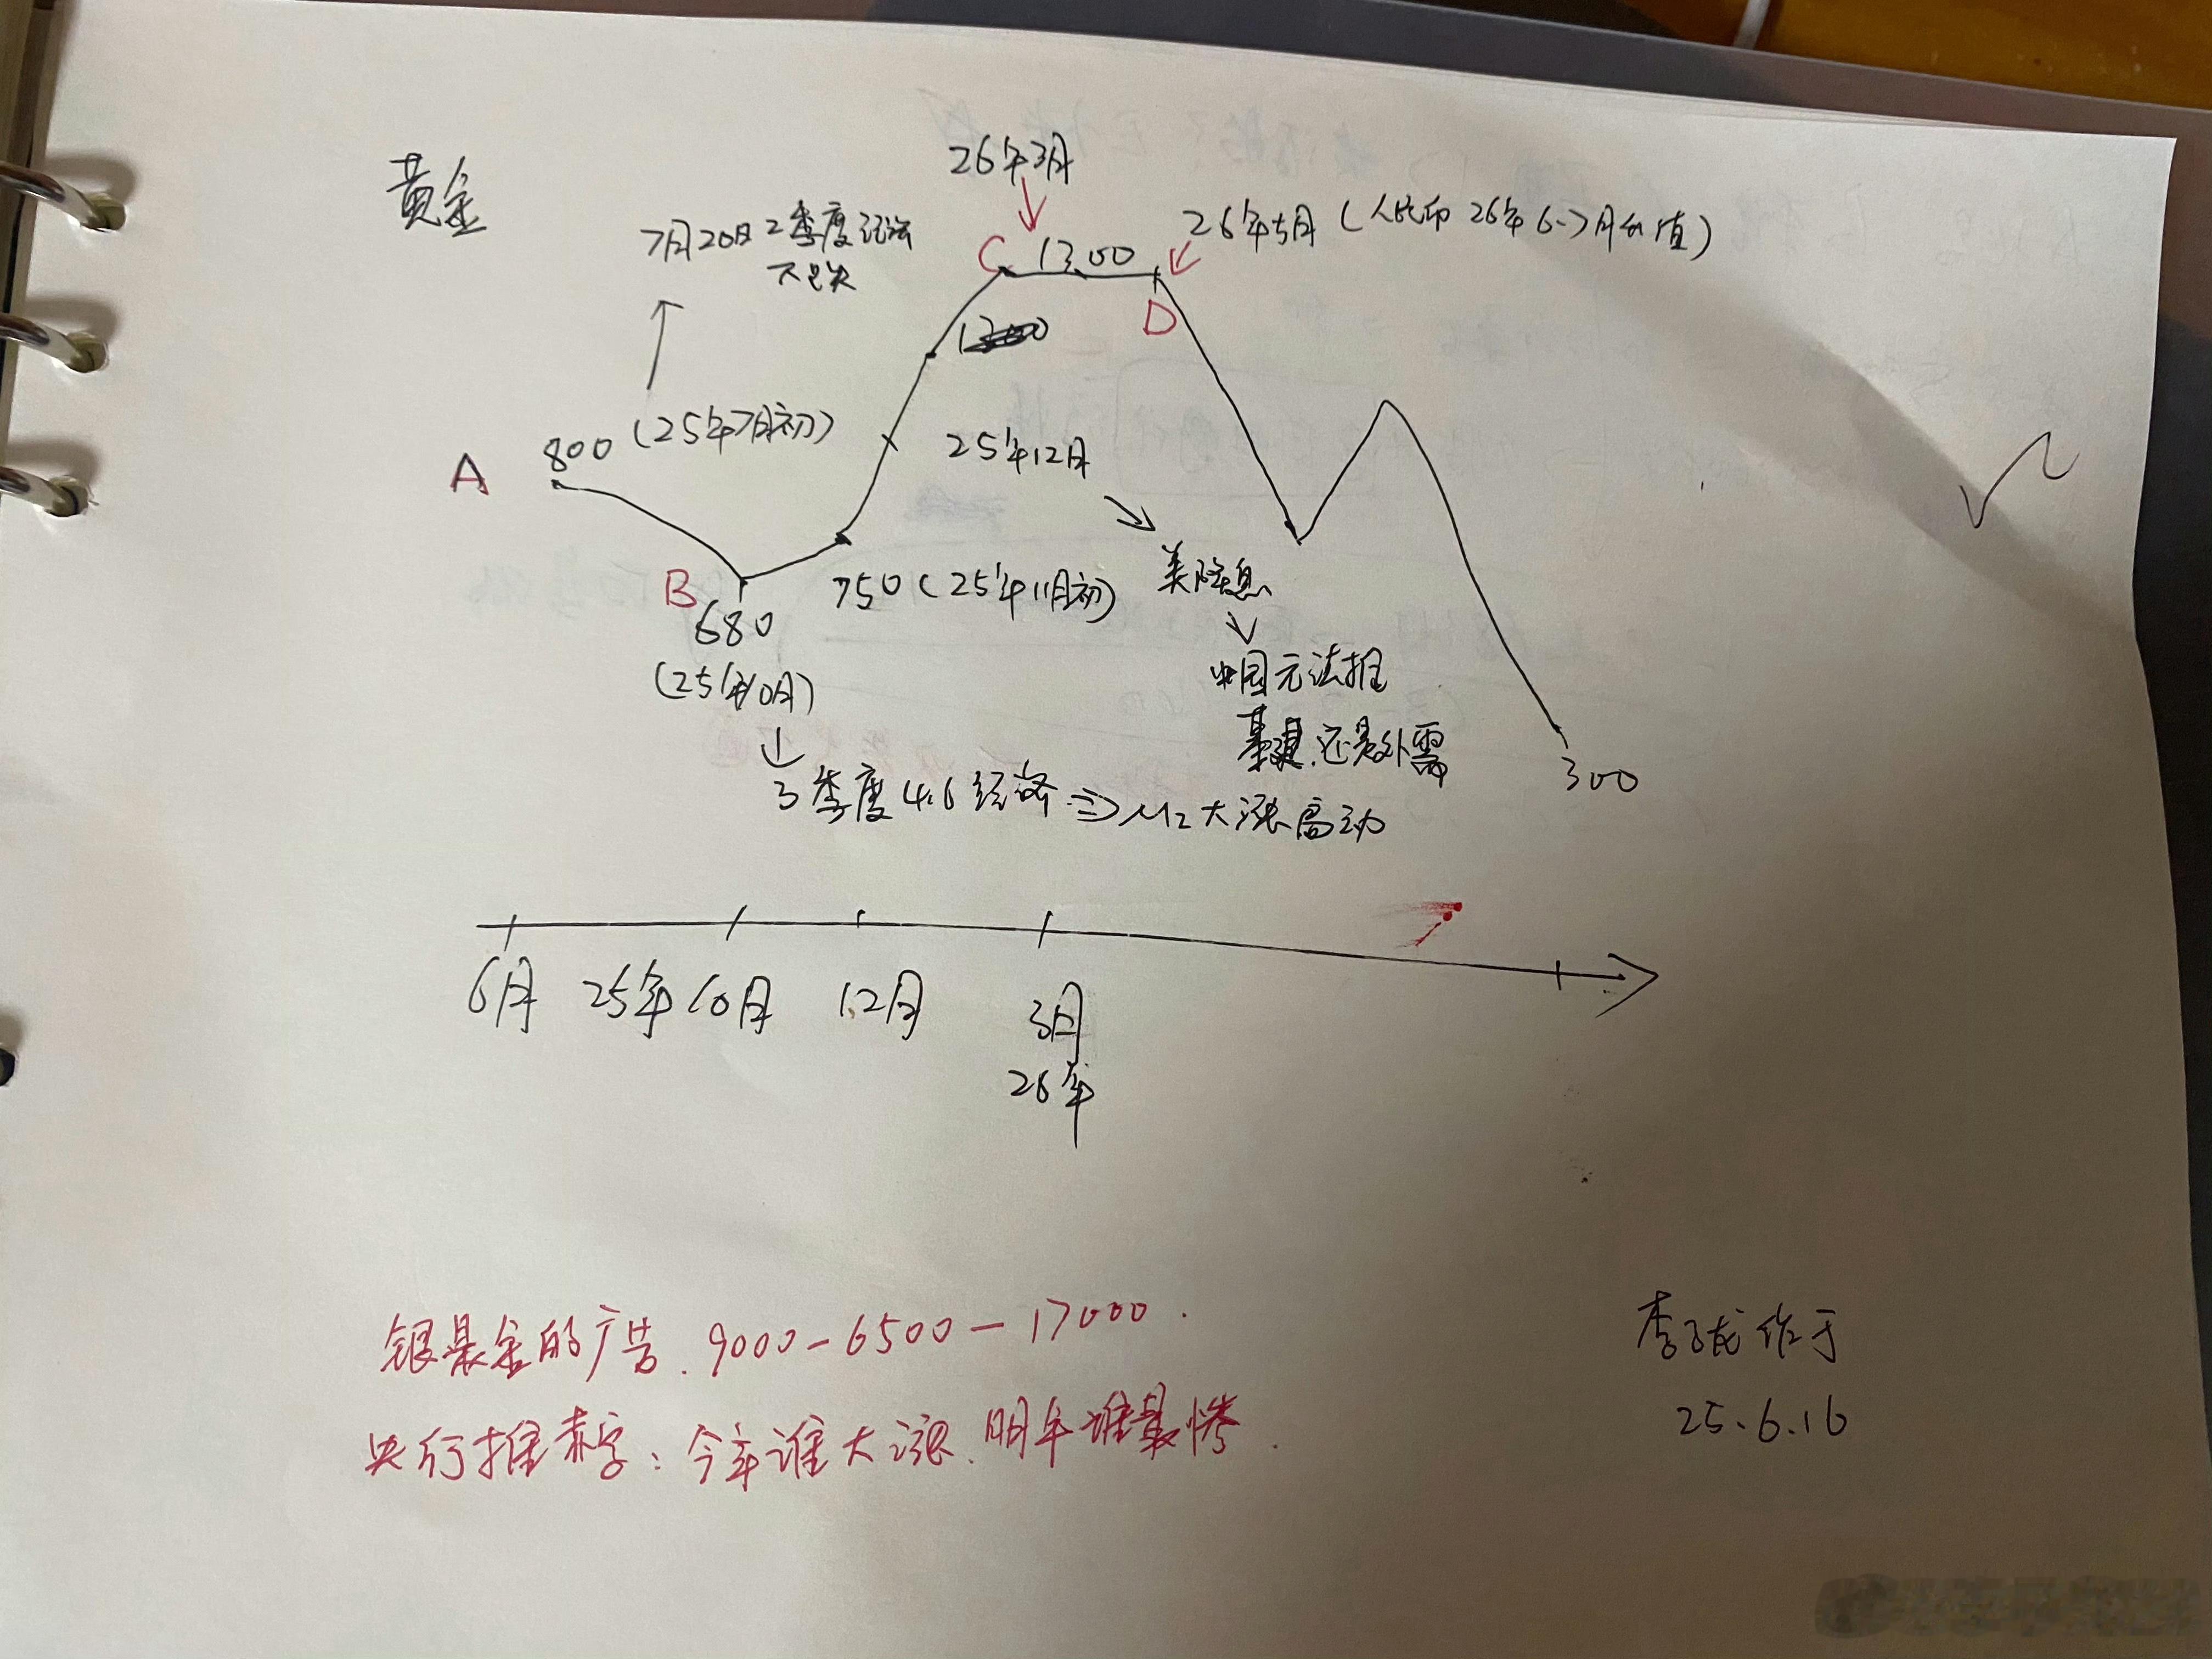 黄金
26年3月
7月20日2季度经济
不及
C 1300
26年5月(人民币26年6-7月估值)
D
A 800 (25年7月初)
25年12月
B
680
(25年10月)
750(25年11月初)
美降息
中国无法推
基建.还是外需
3季度4.6经济⇒M2大涨
300
6月 25年10月 12月 3月
26年
银是金的广告.9000-6500-17000.
央行推赤字:今年谁大涨.明年谁最惨.
李子龙作于
25.6.16